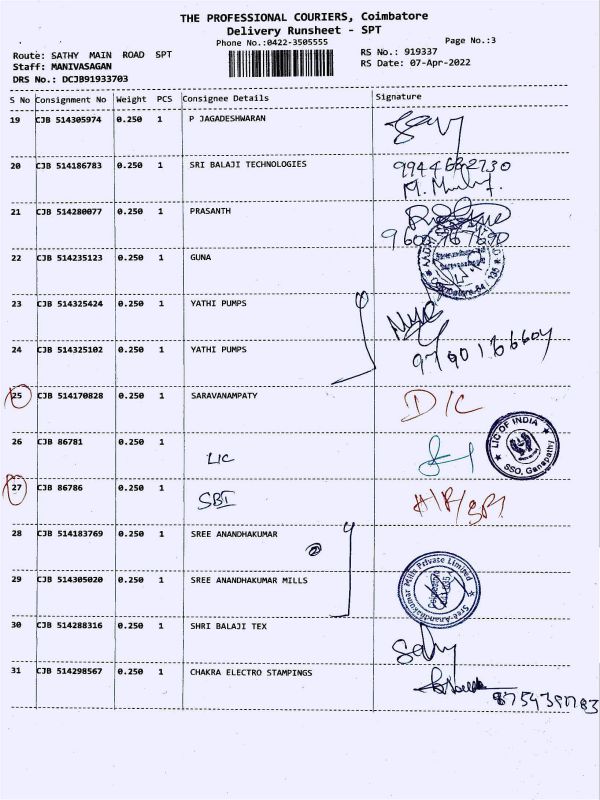 THE PROFESSIONAL COURIERS, Coimbatore
Delivery Runsheet - SPT
Phone No.:0422-3505555
Page No.:3
Route: SATHY MAIN ROAD SPT
RS No.: 919337
Staff: MANIVASAGAN
RS Date: 07-Apr-2022
DRS No.: DCJB91933703
S No Consignment No Weight PCS Consignee Details Signature
19 CJB 514305974 0.250 1 P JAGADESHWARAN
20 CJB 514186783 0.250 1 SRI BALAJI TECHNOLOGIES
21 CJB 514280077 0.250 1 PRASANTH
22 CJB 514235123 0.250 1 GUNA
23 CJB 514325424 0.250 1 YATHI PUMPS
24 CJB 514325102 0.250 1 YATHI PUMPS
25 CJB 514170828 0.250 1 SARAVANAMPATY D/C
26 CJB 86781 0.250 1 LIC
LIC OF INDIA
SSO, Ganapathy
27 CJB 86786 0.250 1 SBI
28 CJB 514183769 0.250 1 SREE ANANDHAKUMAR
2
29 CJB 514305020 0.250 1 SREE ANANDHAKUMAR MILLS
Sree Anandhakumar Mills Private Limited
30 CJB 514288316 0.250 1 SHRI BALAJI TEX
31 CJB 514298567 0.250 1 CHAKRA ELECTRO STAMPINGS